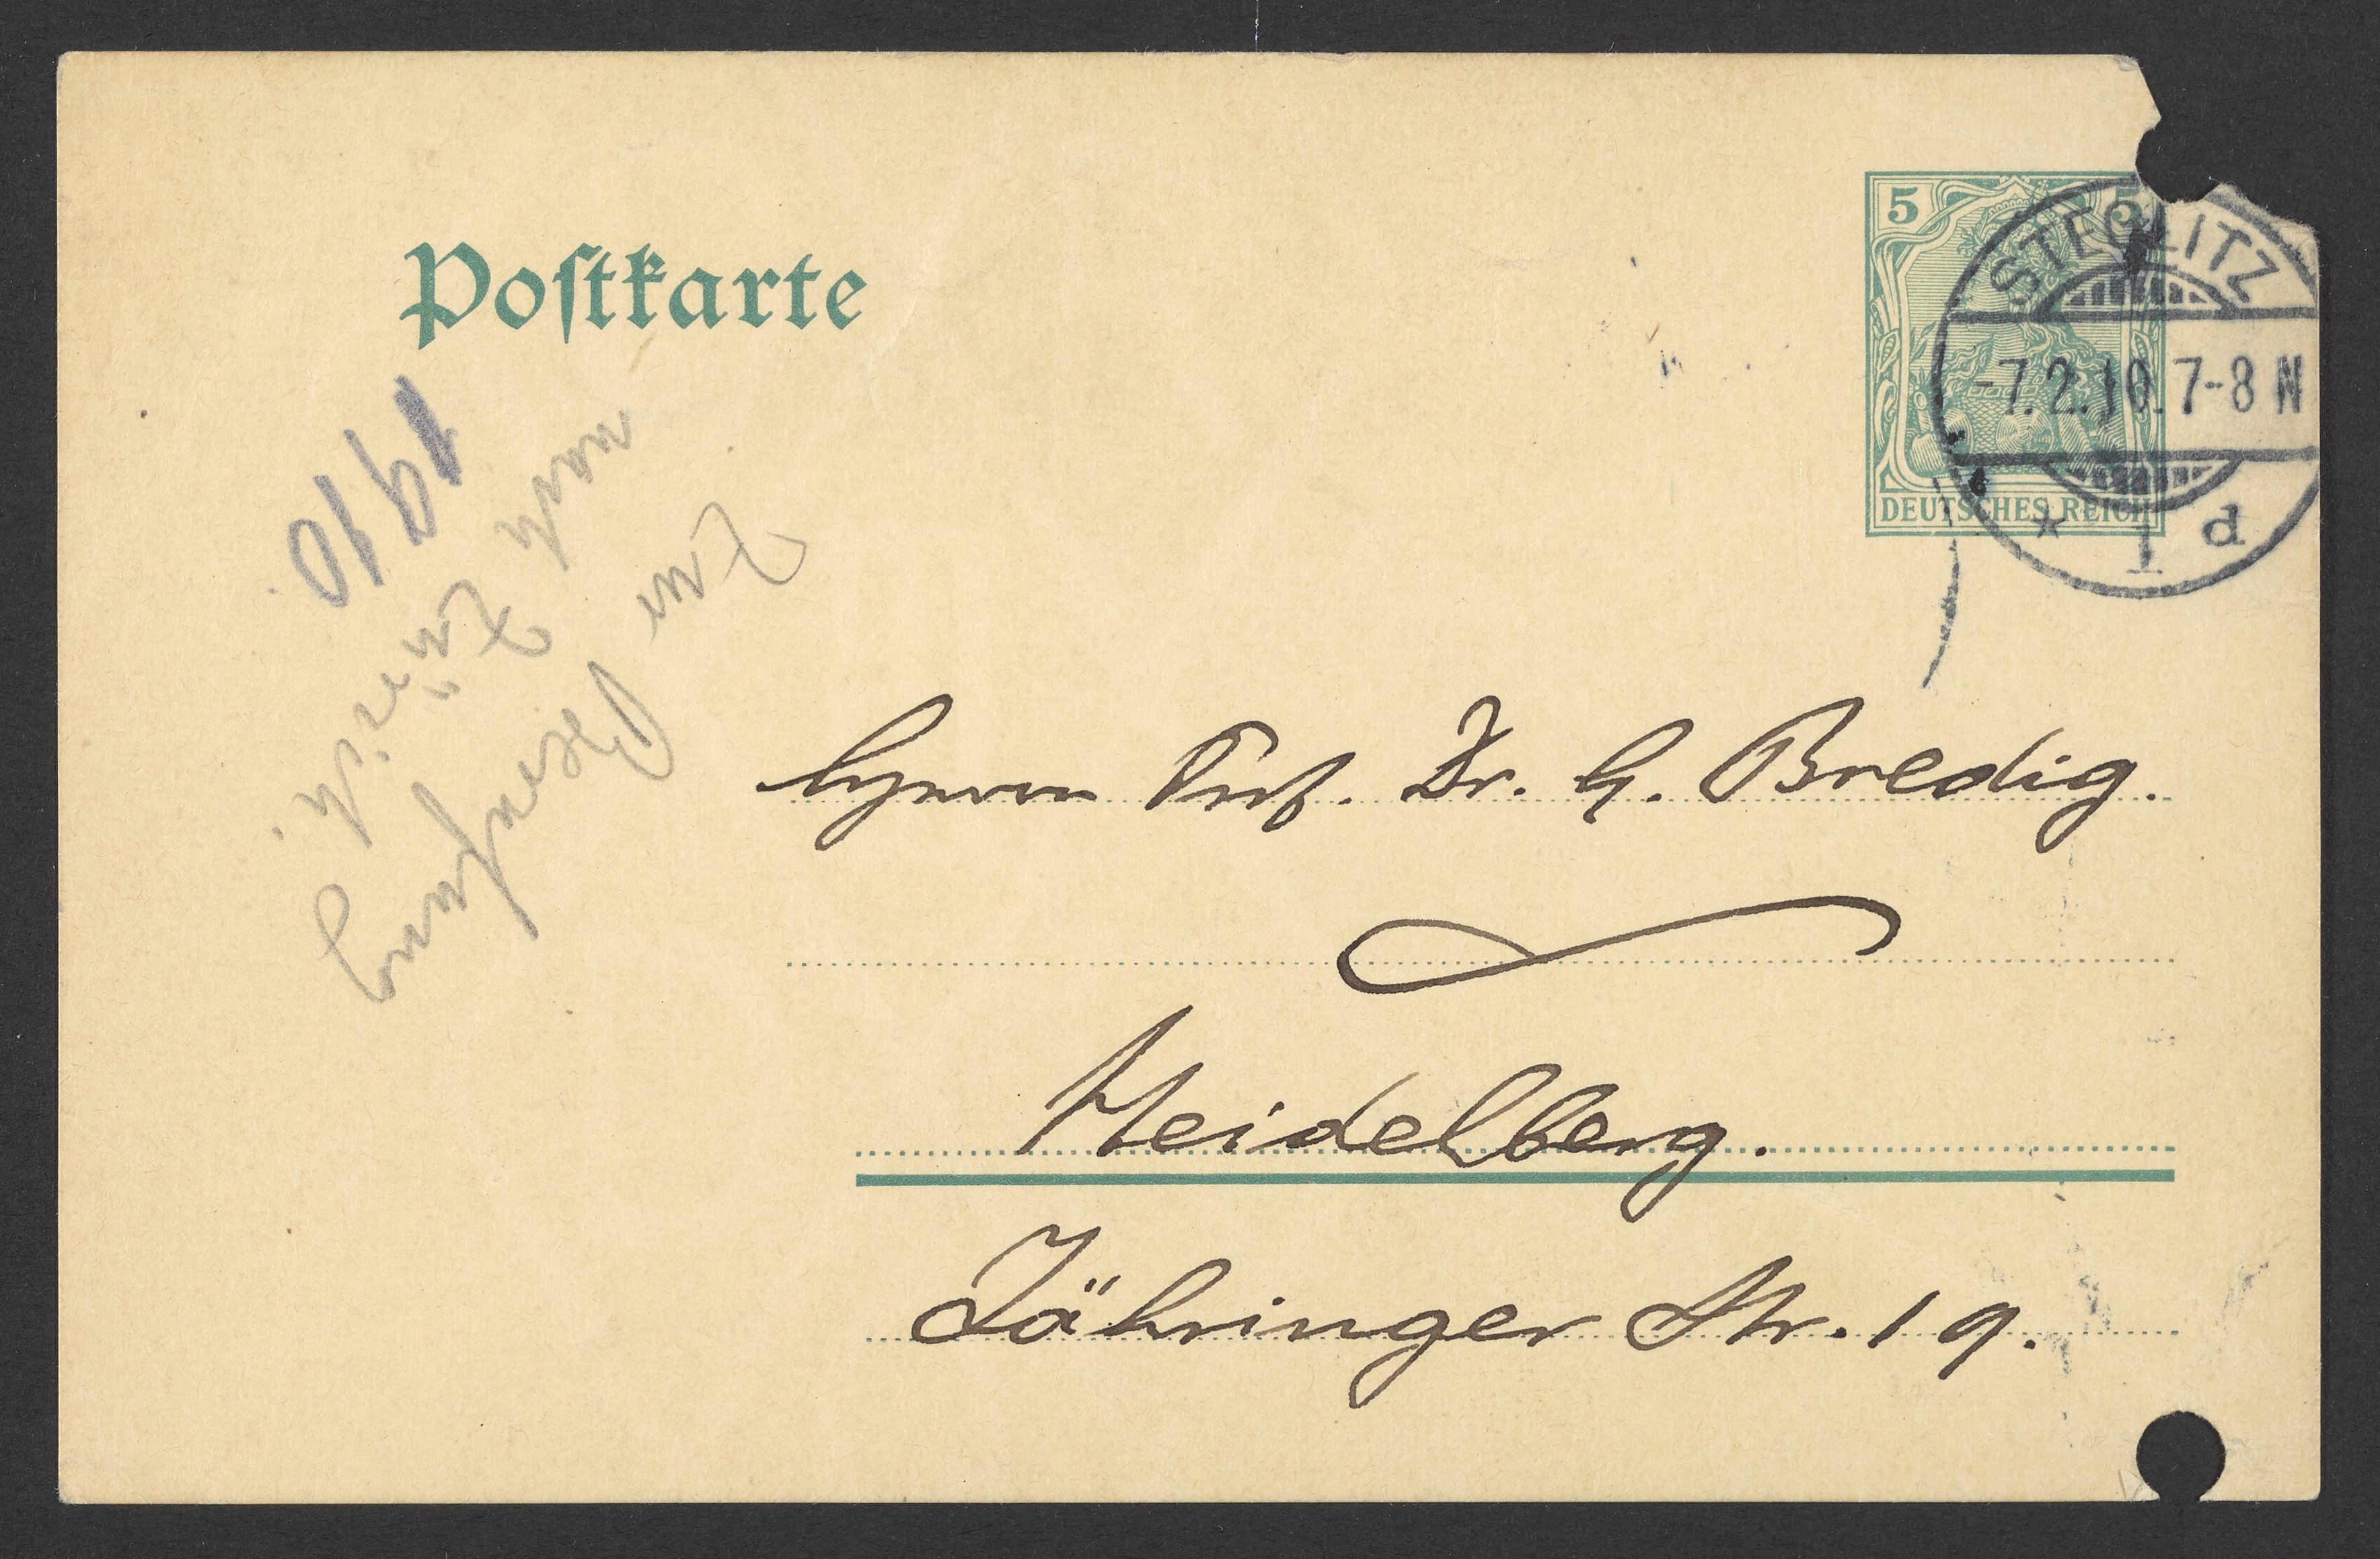 Postkarte
5 5
DEUTSCHES REICH
STEGLITZ
-7.2.10.7-8 N
* 1 d
Zur Berufung
nach Zürich.
1910.
Herrn Prof. Dr. G. Bredig.
Heidelberg.
Zähringer Str. 19.